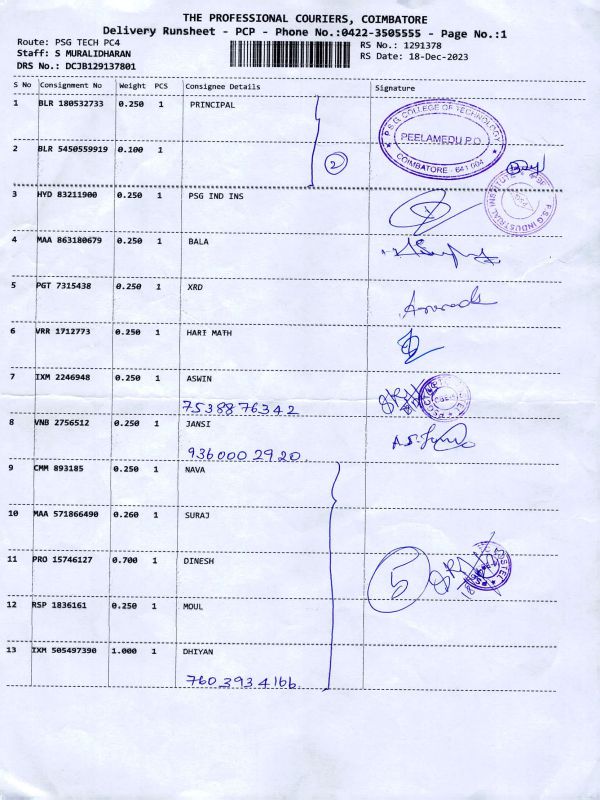 THE PROFESSIONAL COURIERS, COIMBATORE
Delivery Runsheet - PCP - Phone No.:0422-3505555 - Page No.:1
Route: PSG TECH PC4 RS No.: 1291378
Staff: S MURALIDHARAN RS Date: 18-Dec-2023
DRS No.: DCJB129137801
S No Consignment No Weight PCS Consignee Details Signature
1 BLR 180532733 0.250 1 PRINCIPAL
P.S.G. COLLEGE OF TECHNOLOGY
PEELAMEDU P.O.
COIMBATORE - 641 004
2 BLR 5450559919 0.100 1
2
3 HYD 83211900 0.250 1 PSG IND INS
P.S.G. INDUSTRIAL INSTITUTE
4 MAA 863180679 0.250 1 BALA
5 PGT 7315438 0.250 1 XRD
6 VRR 1712773 0.250 1 HARI MATH
7 IXM 2246948 0.250 1 ASWIN
7538876342
8 VNB 2756512 0.250 1 JANSI
9360002920
9 CMM 893185 0.250 1 NAVA
10 MAA 571866490 0.260 1 SURAJ
11 PRO 15746127 0.700 1 DINESH
5
12 RSP 1836161 0.250 1 MOUL
13 IXM 505497390 1.000 1 DHIYAN
7603934166